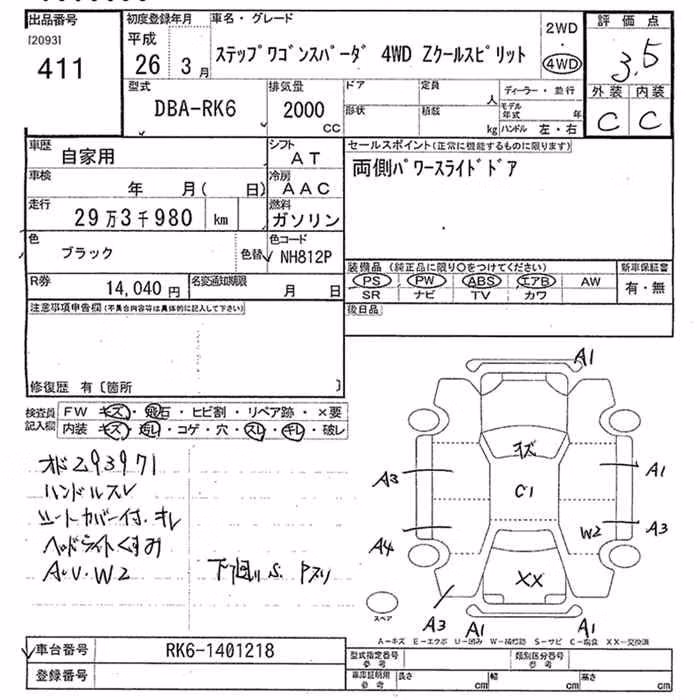 出品番号
[2093]
411
初度登録年月
平成
26年 3月
車名・グレード
ステップワゴンスパーダ 4WD Zクールスピリット
2WD
・
4WD
評価点
3.5
外装 内装
C C
型式
DBA-RK6
排気量
2000
CC
ドア
定員
人
形状
積載
kg
ディーラー・並行
モデル年式 年
ハンドル 左・右
車歴
自家用
シフト
AT
車検
年 月( 日)
冷房
AAC
走行
29万3千980 km
燃料
ガソリン
色
ブラック
色替
色コード
NH812P
R券
14,040円
名変通知期限
月 日
セールスポイント(正常に機能するものに限ります)
両側パワースライドドア
装備品(純正品に限り○をつけてください)
PS PW ABS エアB AW
SR ナビ TV カワ
新車保証書
有・無
後日品
注意事項申告欄(不具合内容等は具体的に記入して下さい)
修復歴 有〔箇所 〕
検査員記入欄
FW キズ・飛石・ヒビ割・リペア跡・×要
内装 キズ・汚レ・コゲ・穴・スレ・キレ・破レ
オド293971
ハンドルスレ
シートカバー付.キレ
ヘッドライトくすみ
A.U.W2
下廻りS.Pスリ
A1
キズ
A3
C1
A1
W2
A3
A4
XX
A3
A1
A1
スペア
A−キズ E−エクボ U−凹み W−補修跡 S−サビ C−腐食 XX−交換済
車台番号
RK6-1401218
登録番号
型式指定番号
参考
類別区分番号
参考
車庫証明用
参考
長さ cm
幅 cm
高さ cm